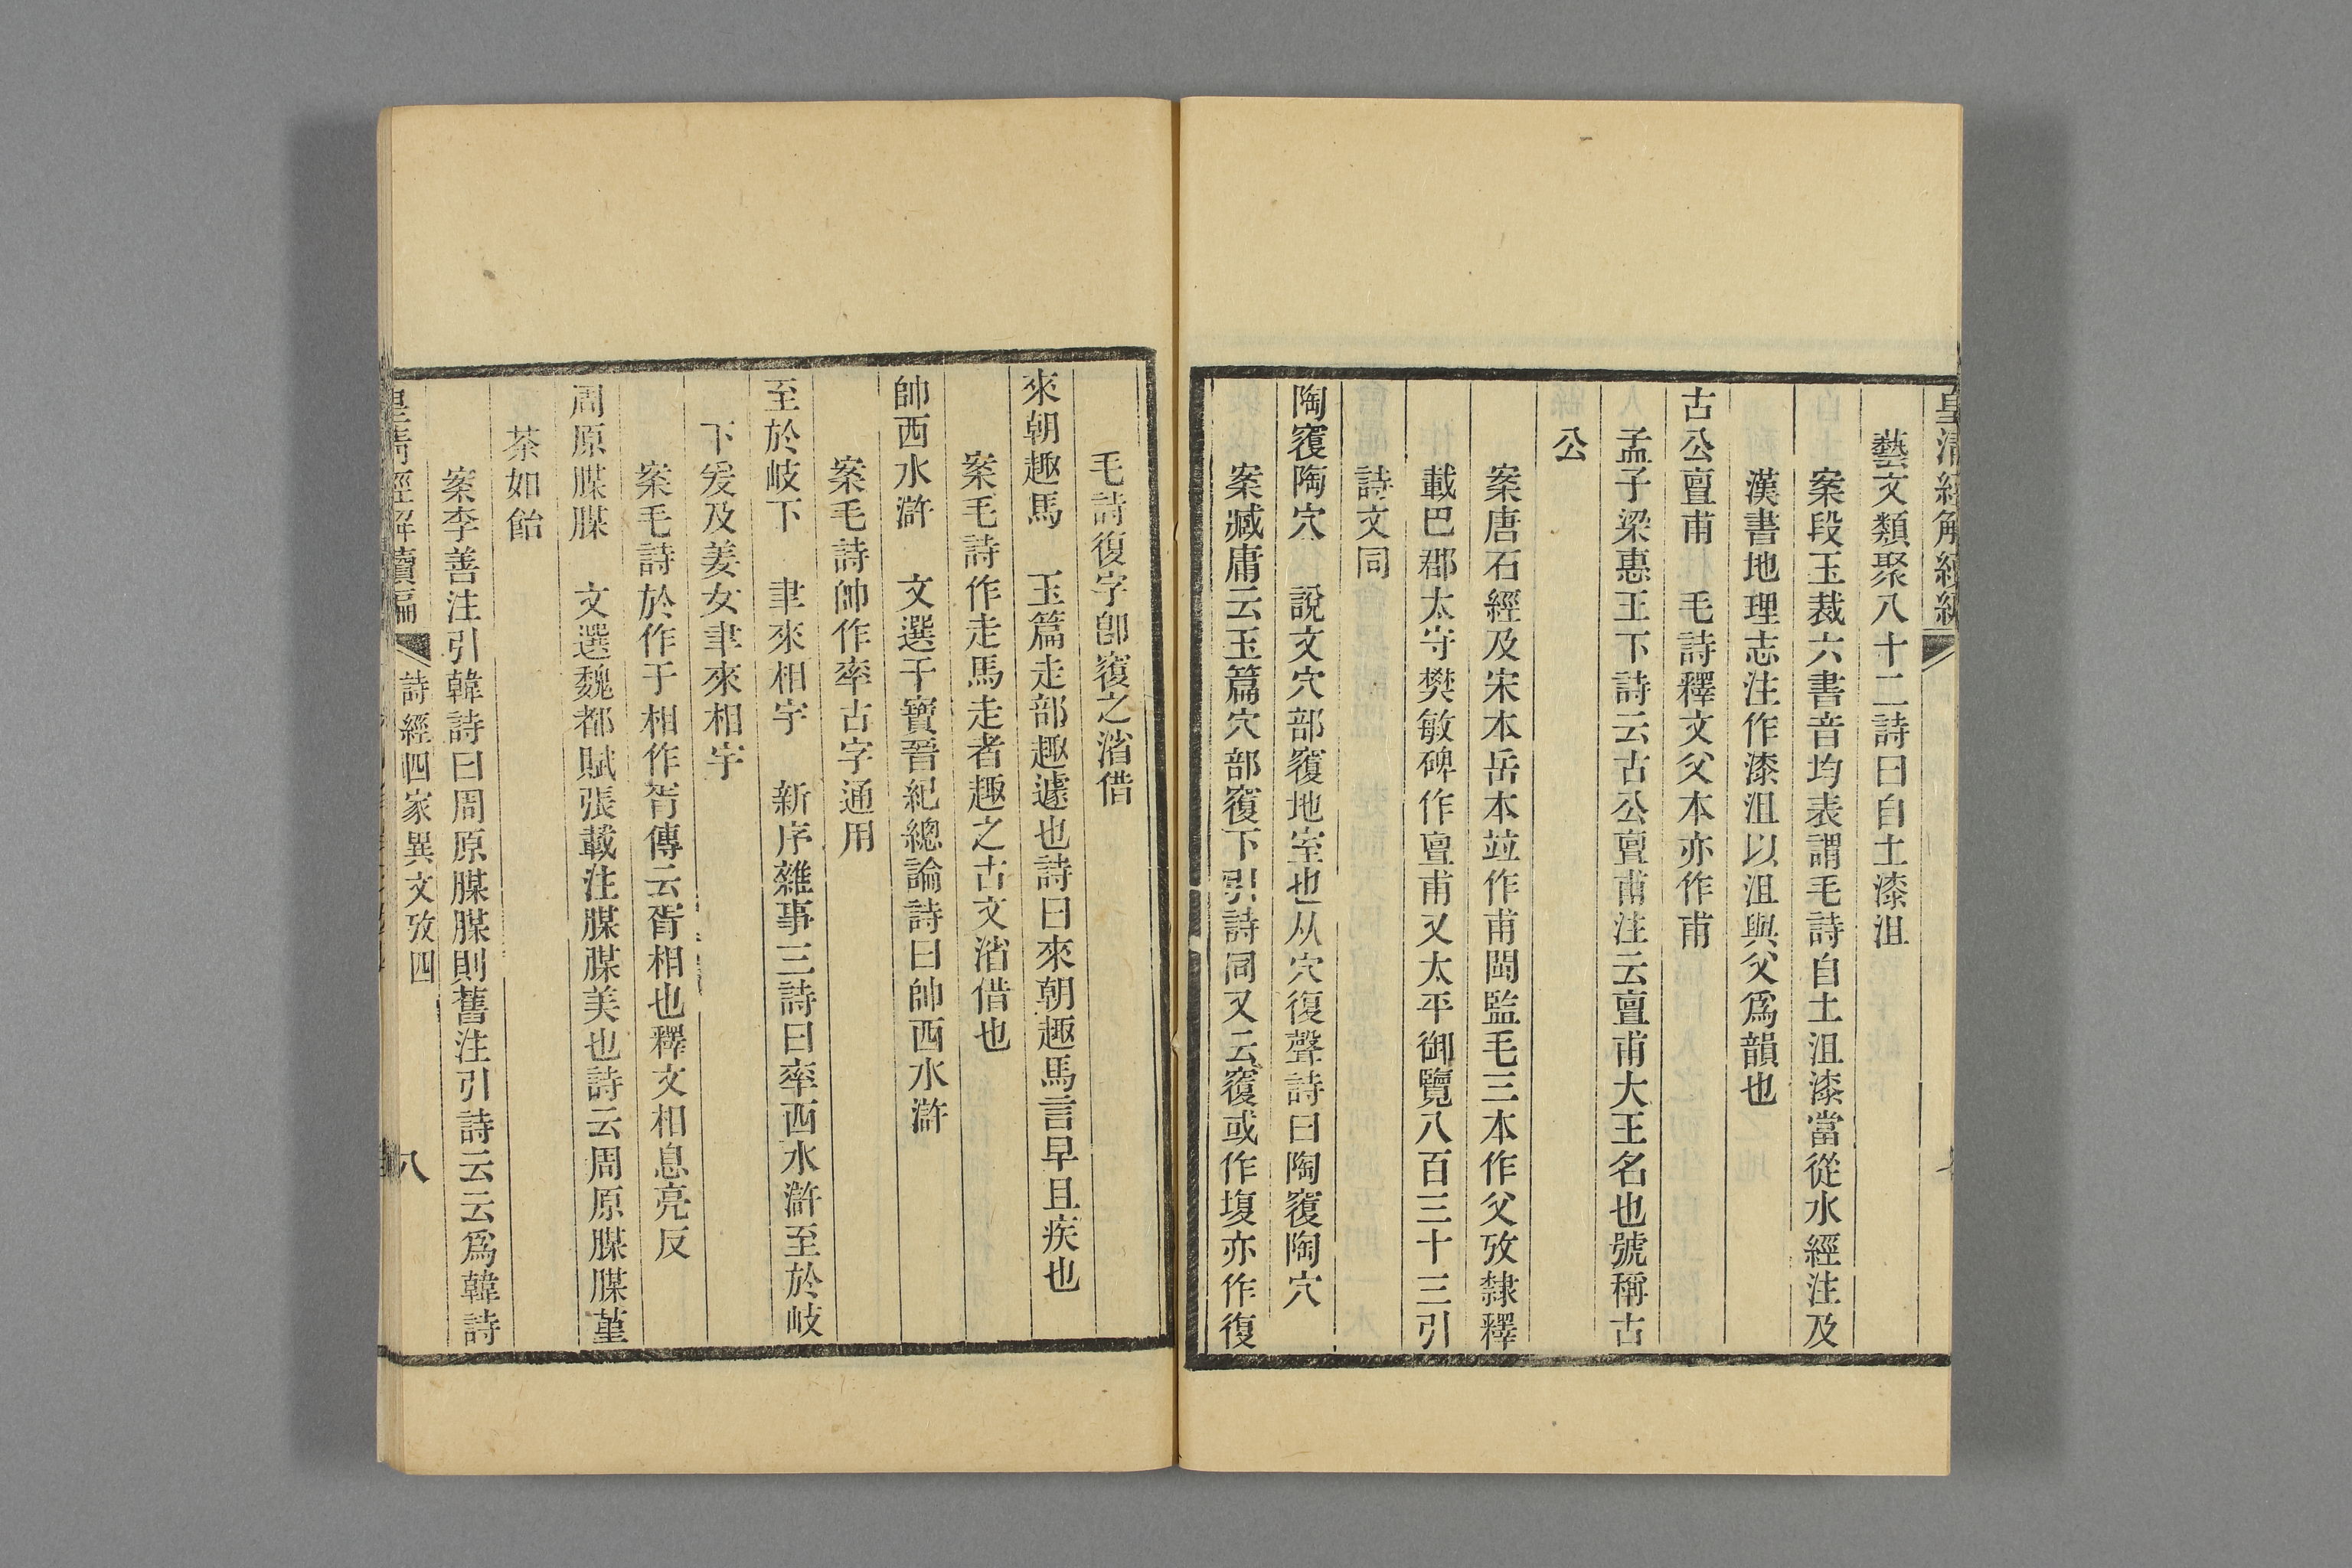 皇清經解續編
藝文類聚八十二詩曰自土漆沮
案段玉裁六書音均表謂毛詩自土沮漆當從水經注及
漢書地理志注作漆沮以沮與父爲韻也
古公亶甫　毛詩釋文父本亦作甫
孟子梁惠王下詩云古公亶甫注云亶甫大王名也號稱古
公
案唐石經及宋本岳本竝作甫閩監毛三本作父攷隸釋
載巴郡太守樊敏碑作亶甫又太平御覽八百三十三引
詩文同
陶覆陶穴　說文穴部覆地室也从穴復聲詩曰陶覆陶穴
案臧庸云玉篇穴部覆下引詩同又云覆或作㙏亦作復
毛詩復字卽覆之渻借
來朝趣馬　玉篇走部趣遽也詩曰來朝趣馬言早且疾也
案毛詩作走馬走者趣之古文渻借也
帥西水滸　文選干寶晉紀總論詩曰帥西水滸
案毛詩帥作率古字通用
至於岐下　聿來相宇　新序雜事三詩曰率西水滸至於岐
下爰及姜女聿來相宇
案毛詩於作于相作胥傳云胥相也釋文相息亮反
周原腜腜　文選魏都賦張載注腜腜美也詩云周原腜腜堇
荼如飴
案李善注引韓詩曰周原腜腜則舊注引詩云云爲韓詩
皇清經解續編　詩經四家異文攷四　八